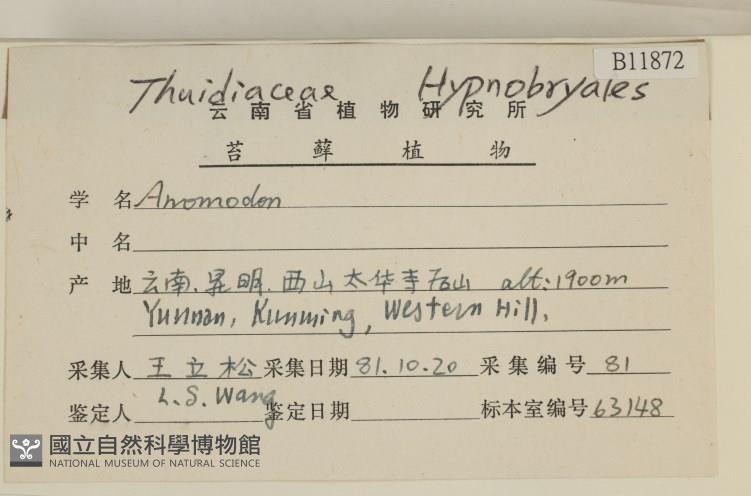 B11872
Thuidiaceae Hypnobryales
云南省植物研究所
苔藓植物
学名 Anomodon
中名
产地 云南.昆明.西山太华寺后山 alt:1900m
Yunnan, Kunming, Western Hill.
采集人 王立松 采集日期 81.10.20 采集编号 81
L.S. Wang
鉴定人 鉴定日期 标本室编号 63148
國立自然科學博物館
NATIONAL MUSEUM OF NATURAL SCIENCE